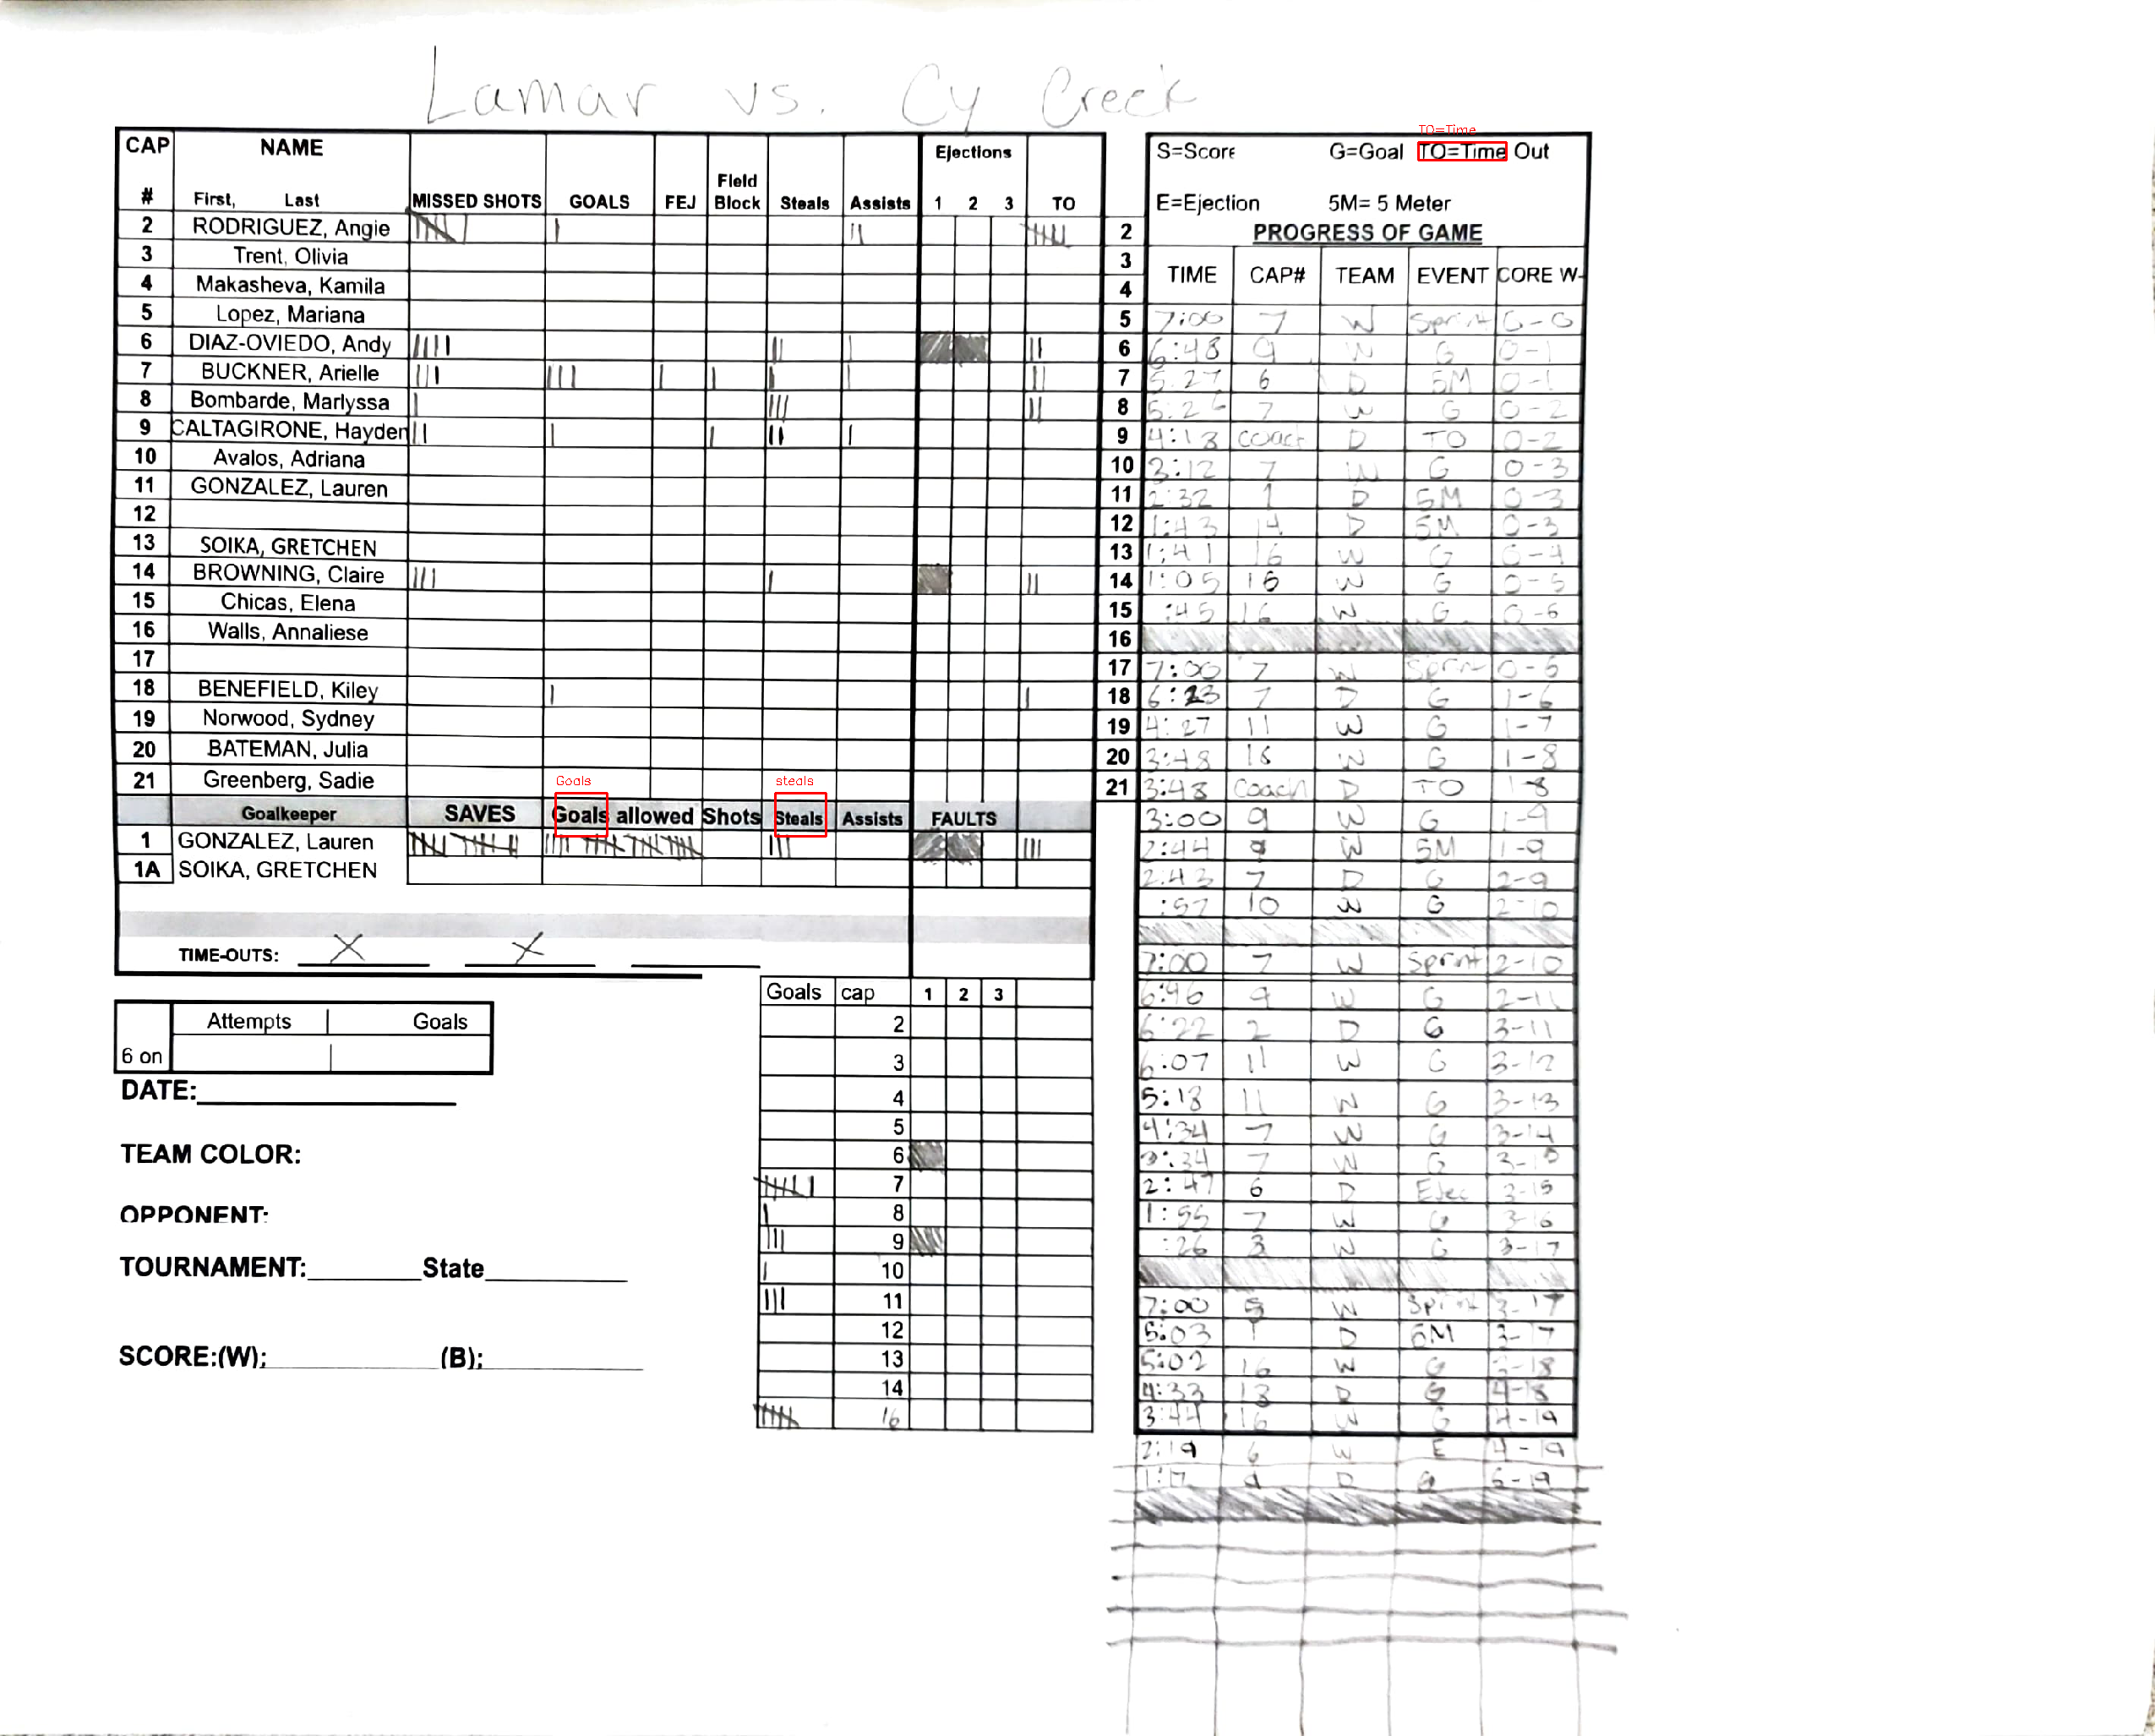 Lamar vs. Cy Creek
CAP # NAME First, Last MISSED SHOTS GOALS FEJ Field Block Steals Assists Ejections 1 2 3 TO
2 RODRIGUEZ, Angie 2
3 Trent, Olivia 3
4 Makasheva, Kamila 4
5 Lopez, Mariana 5
6 DIAZ-OVIEDO, Andy 6
7 BUCKNER, Arielle 7
8 Bombarde, Marlyssa 8
9 CALTAGIRONE, Hayden 9
10 Avalos, Adriana 10
11 GONZALEZ, Lauren 11
12 12
13 SOIKA, GRETCHEN 13
14 BROWNING, Claire 14
15 Chicas, Elena 15
16 Walls, Annaliese 16
17 17
18 BENEFIELD, Kiley 18
19 Norwood, Sydney 19
20 BATEMAN, Julia 20
21 Greenberg, Sadie 21
Goals steals
Goalkeeper SAVES Goals allowed Shots Steals Assists FAULTS
1 GONZALEZ, Lauren
1A SOIKA, GRETCHEN
TIME-OUTS: X X
Attempts Goals
6 on
DATE:
TEAM COLOR:
OPPONENT:
TOURNAMENT: State
SCORE:(W): (B):
Goals cap 1 2 3
2
3
4
5
6
7
8
9
10
11
12
13
14
16
TO=Time
S=Score G=Goal TO=Time Out
E=Ejection 5M= 5 Meter
PROGRESS OF GAME
TIME CAP# TEAM EVENT CORE W-
7:00 7 W Sprint 0-0
6:48 9 W G 0-1
5:27 6 D 5M 0-1
5:26 7 W G 0-2
4:13 coach D TO 0-2
3:12 7 W G 0-3
2:32 1 D 5M 0-3
1:43 14 D 5M 0-3
1:41 16 W G 0-4
1:05 16 W G 0-5
:45 16 W G 0-6
7:00 7 W Sprint 0-6
6:23 7 D G 1-6
4:27 11 W G 1-7
3:48 16 W G 1-8
3:48 Coach D TO 1-8
3:00 9 W G 1-9
2:44 9 W 5M 1-9
2:43 7 D G 2-9
:57 10 W G 2-10
7:00 7 W Sprint 2-10
6:46 9 W G 2-11
6:22 2 D G 3-11
6:07 11 W G 3-12
5:13 11 W G 3-13
4:34 7 W G 3-14
3:34 7 W G 3-15
2:47 6 D Ejec 3-15
1:55 7 W G 3-16
:26 3 W G 3-17
7:00 W Sprint 3-17
5:03 1 D 5M 3-17
5:02 16 W G 3-18
4:33 18 D G 4-18
3:44 16 W G 4-19
2:19 6 W E 4-19
9 D G 5-19